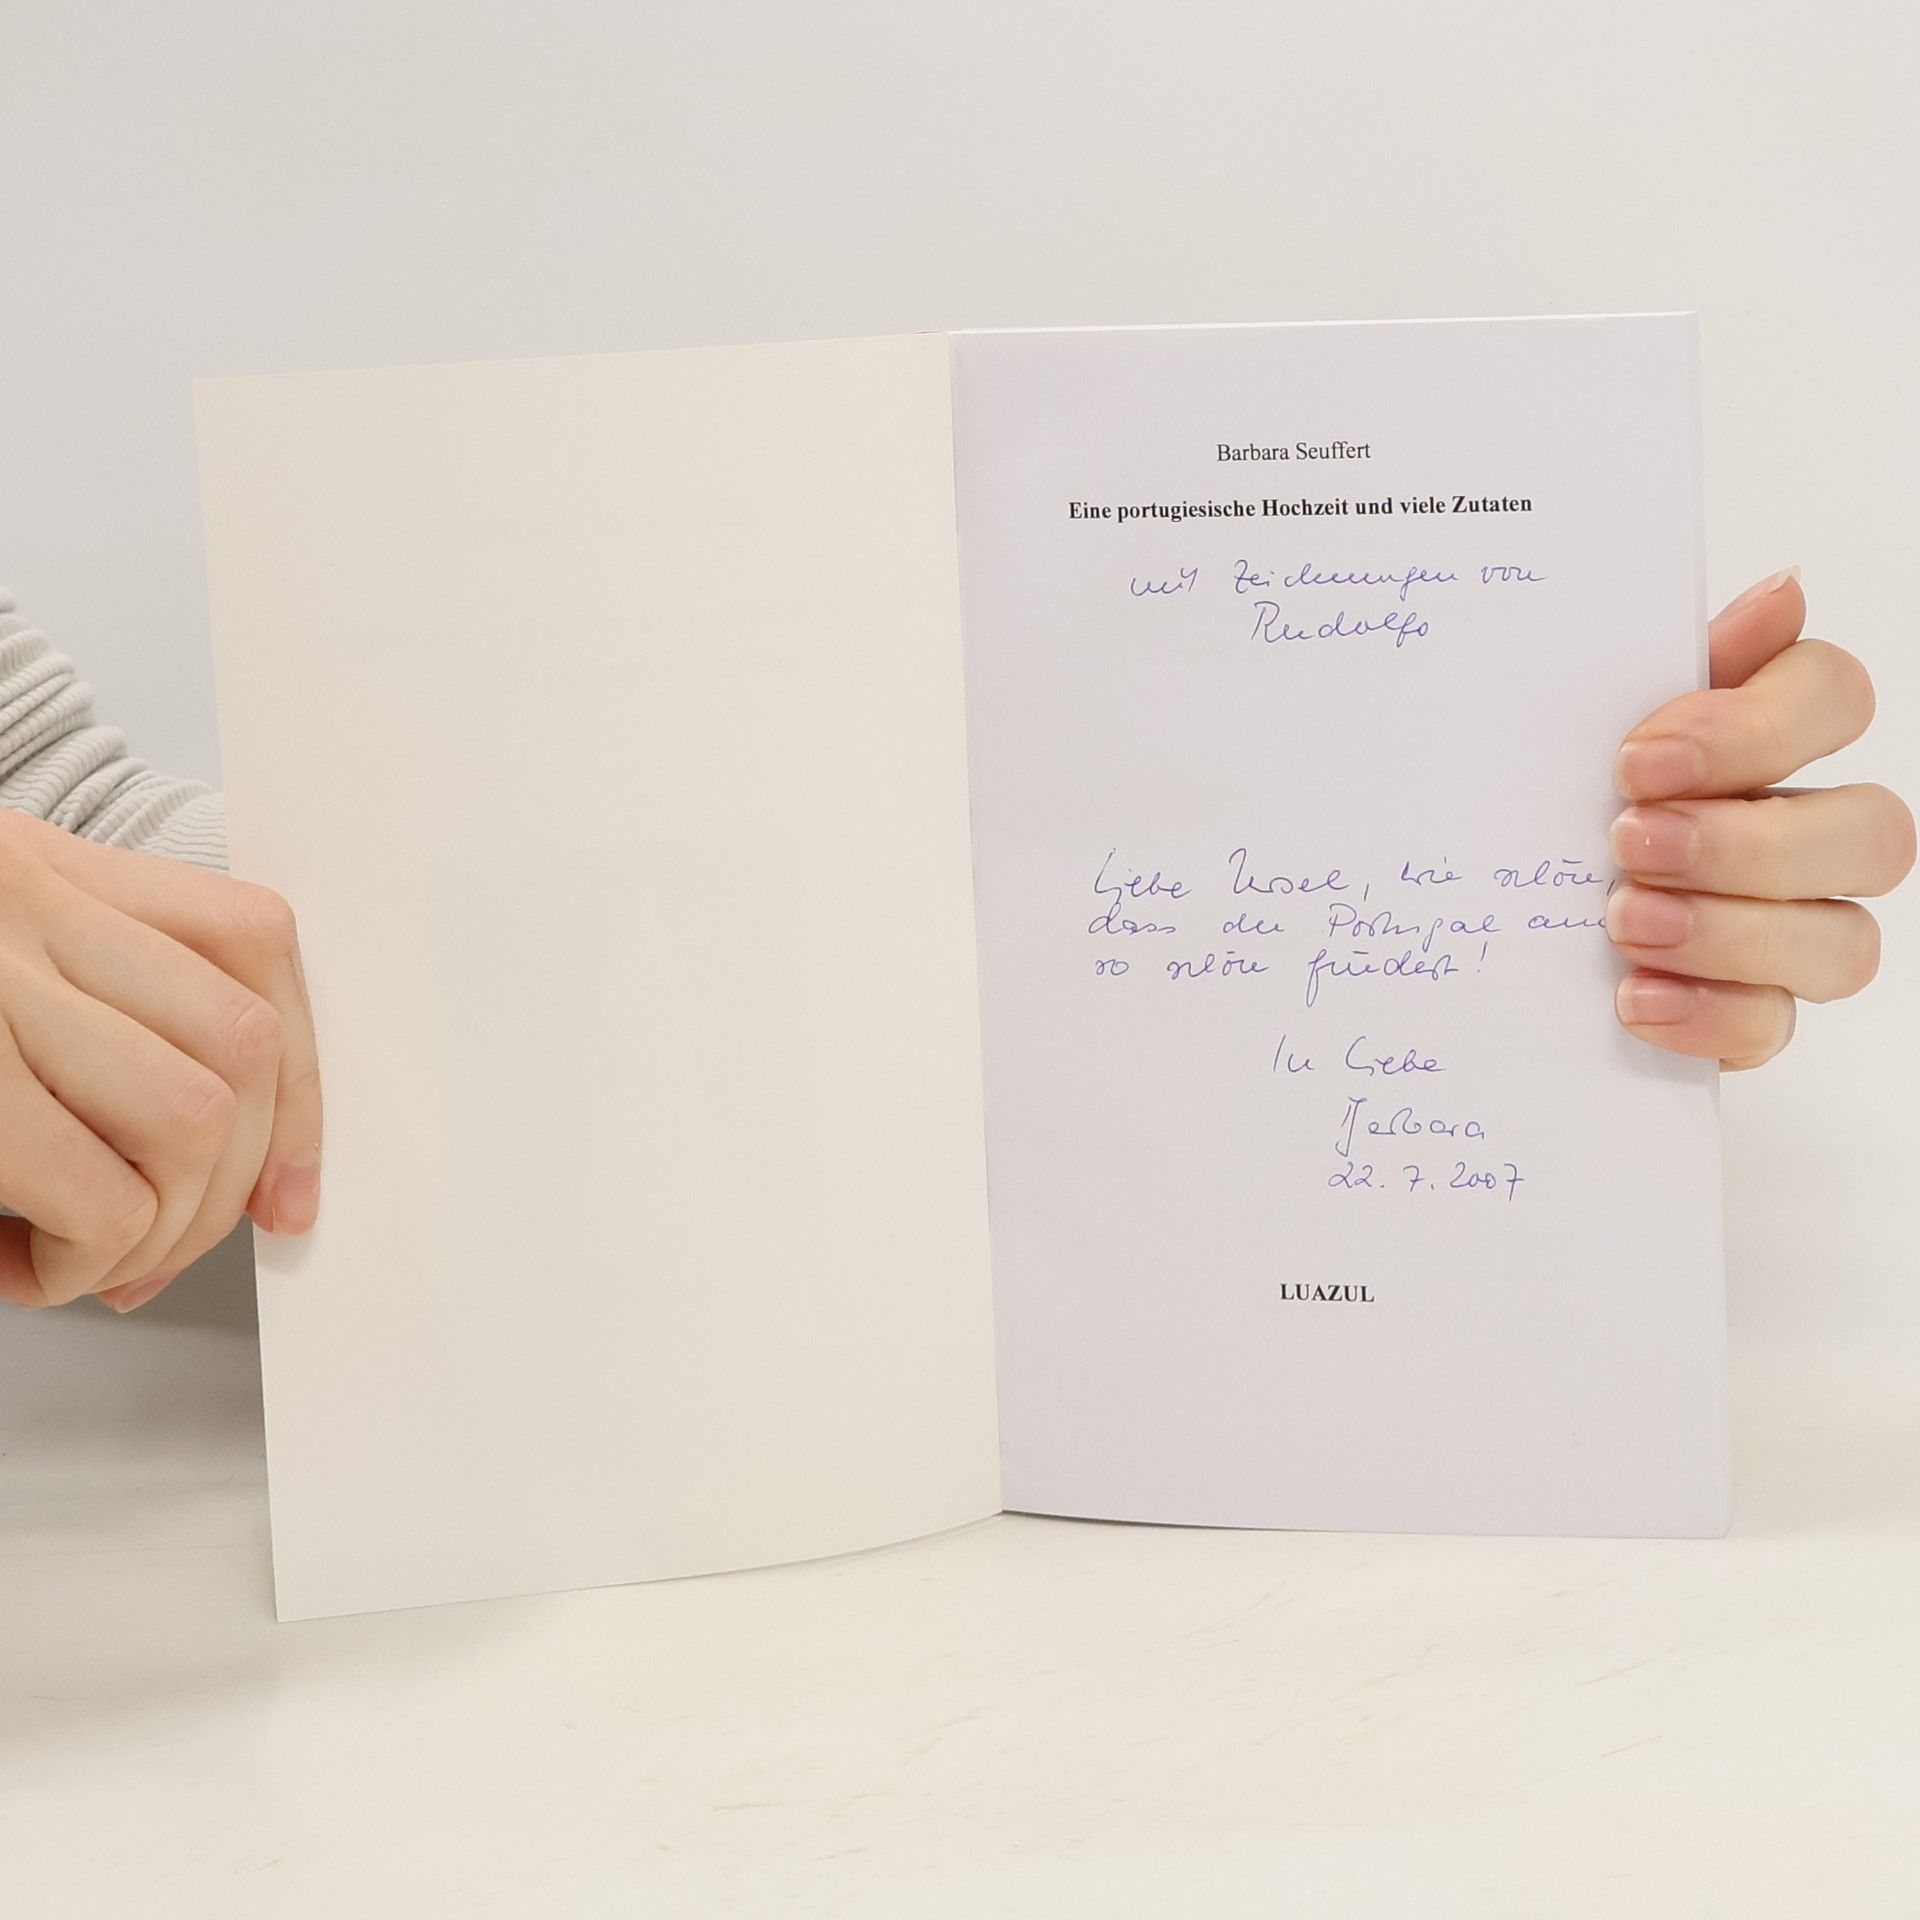 Barbara Seuffert
Eine portugiesische Hochzeit und viele Zutaten
mit Zeichnungen von
Rudolfo
Liebe Ursel, wie schön,
dass du Portugal
so schön findest!
In Liebe
Barbara
22.7.2007
LUAZUL